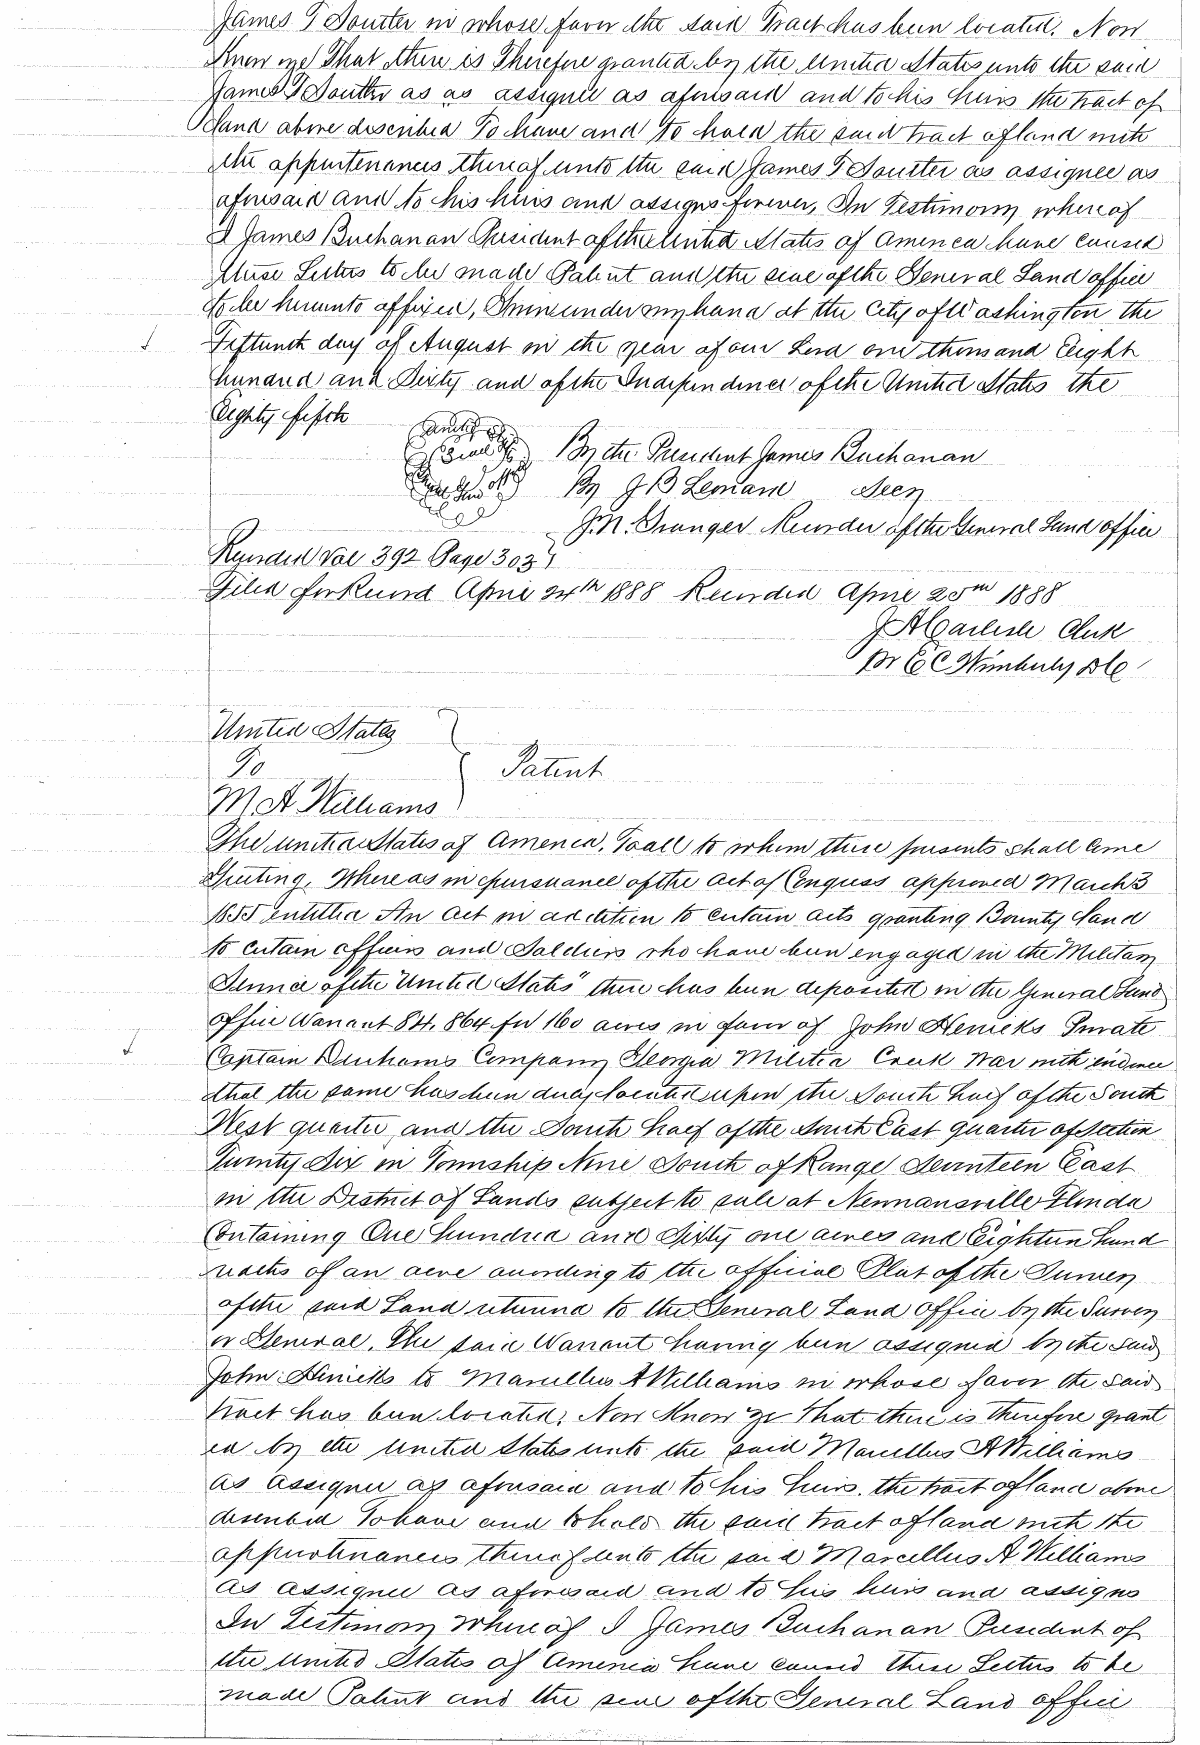 James T Souter in whose favor the said Tract has been located. Now
Know ye That there is Therefore granted by the United States unto the said
James T Souter as as assignee as aforesaid and to his heirs the tract of
Land above described To have and To hold the said tract of land with
the appurtenances thereof unto the said James T Souter as assignee as
aforesaid and to his heirs and assigns forever, In Testimony whereof
I James Buchanan President of the United States of America have caused
these Letters to be made Patent and the seal of the General Land office
to be hereunto affixed, Given under my hand at the City of Washington the
Fifteenth day of August in the year of our Lord one thousand Eight
hundred and Sixty and of the Independence of the United States the
Eighty fifth
By the President James Buchanan
By J B Leonard Secy
J. N. Granger Recorder of the General Land office
Recorded Vol 392 Page 303
Filed for Record April 24th 1888 Recorded April 25th 1888
J A Carlisle Clerk
pr C C Wimberly D C
United States
To
Patent
M A Williams
The United States of America, To all to whom these presents shall come
Greeting, Whereas in pursuance of the act of Congress approved March 3
1855 entitled An Act in addition to certain acts granting Bounty Land
to certain officers and Soldiers who have been engaged in the Military
Service of the United States" there has been deposited in the General Land
office Warrant 84,864 for 160 acres in favor of John Hericks Private
Captain Dunhams Company Georgia Militia Creek War with evidence
that the same has been duly located upon the South half of the South
West quarter and the South half of the South East quarter of section
Twenty Six in Township Nine South of Range Seventeen East
in the District of Lands subject to sale at Newnansville Florida
Containing One hundred and Sixty one acres and Eighteen hund
redths of an acre according to the official Plat of the Survey
of the said Land returned to the General Land office by the Survey
or General, The said Warrant having been assigned by the said
John Hericks to Marcellus A Williams in whose favor the said
tract has been located, Now Know ye That there is therefore grant
ed by the United States unto the said Marcellus A Williams
as assignee as aforesaid and to his heirs, the tract of land above
described To have and to hold the said tract of land with the
appurtenances thereof unto the said Marcellus A Williams
as assignee as aforesaid and to his heirs and assigns
In Testimony whereof I James Buchanan President of
the United States of America have caused these Letters to be
made Patent and the seal of the General Land office